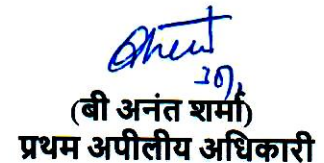 (बी अनंत शर्मा)
प्रथम अपीलीय अधिकारी